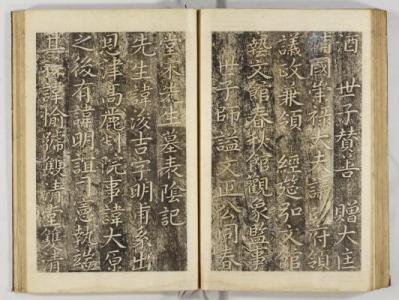 酉 世子贊善 贈大匡
輔國崇祿大夫議政府領
議政兼領 經筵弘文館
藝文館春秋館觀象監事
世子師謚文正公同春
堂宋先生墓表陰記
先生諱浚吉字明甫系出
恩津高麗判院事諱大原
之後有諱明誼司憲執端
其孫諱愉號雙清堂雙清